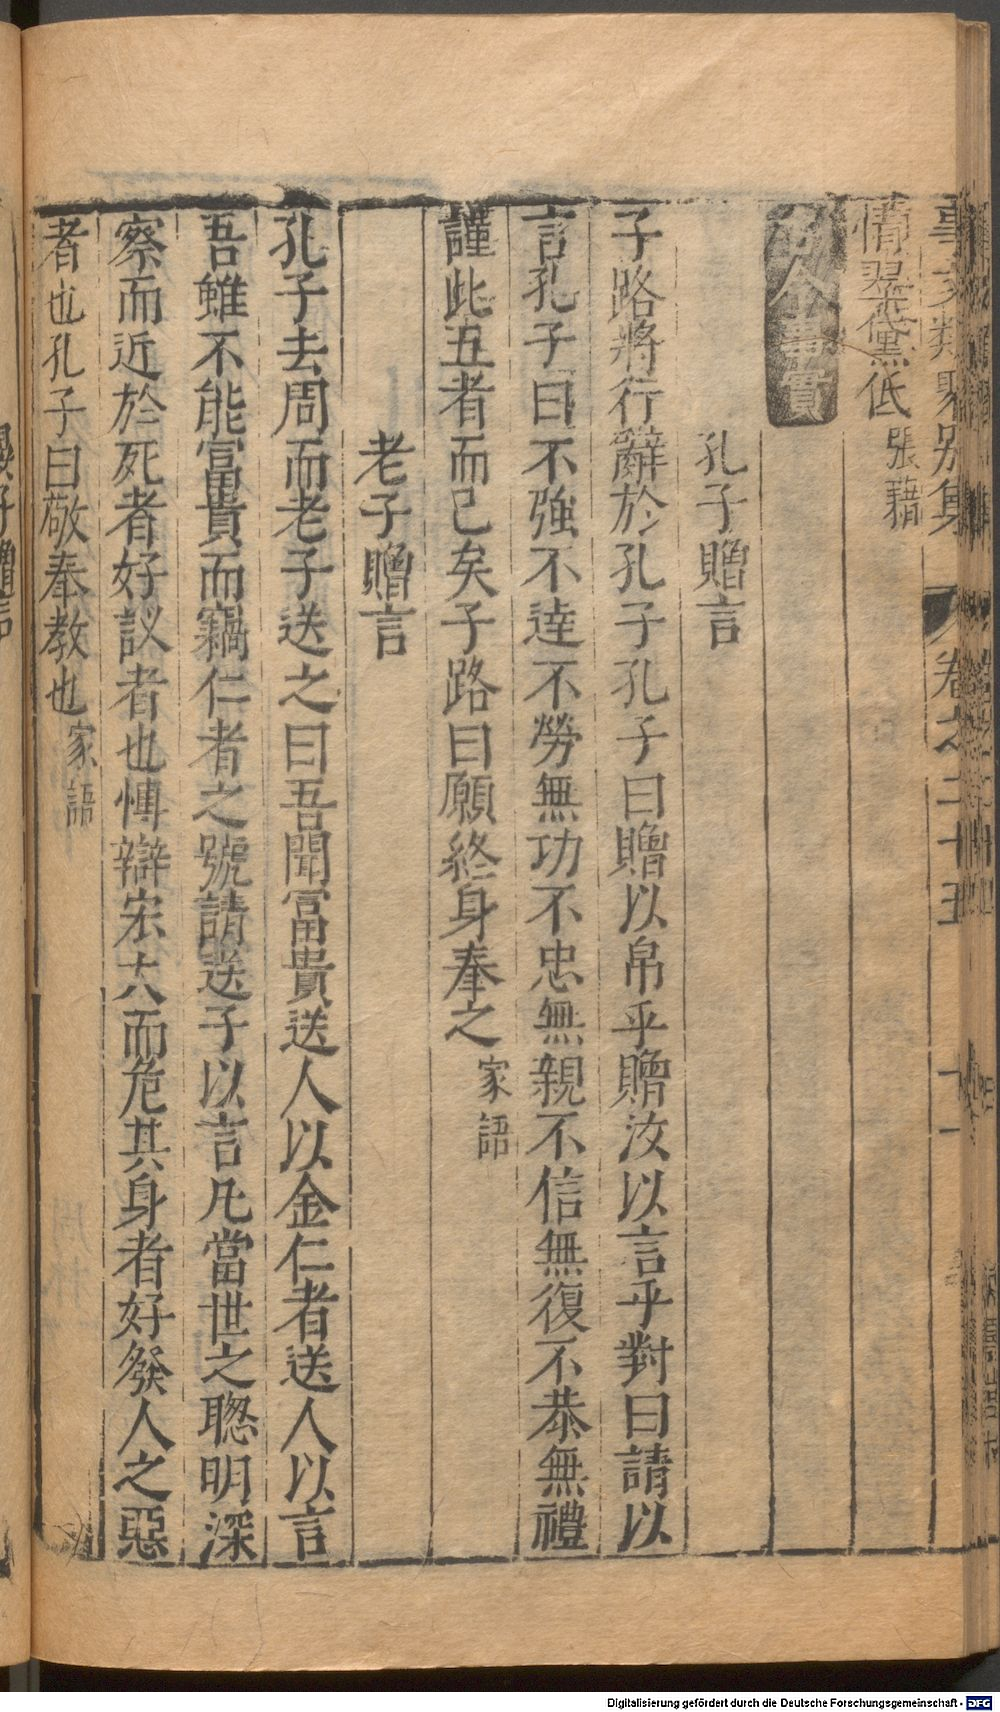 事文類聚別集 卷之二十五 十一
情翠黛低 張籍
古今事實
孔子贈言
子路將行辭於孔子孔子曰贈以帛乎贈汝以言乎對曰請以
言孔子曰不強不達不勞無功不忠無親不信無復不恭無禮
謹此五者而已矣子路曰願終身奉之 家語
老子贈言
孔子去周而老子送之曰吾聞富貴送人以金仁者送人以言
吾雖不能富貴而竊仁者之號請送子以言凡當世之聦明深
察而近於死者好議者也愽辯宏大而危其身者好發人之惡
者也孔子曰敬奉教也 家語
Digitalisierung gefördert durch die Deutsche Forschungsgemeinschaft - DFG